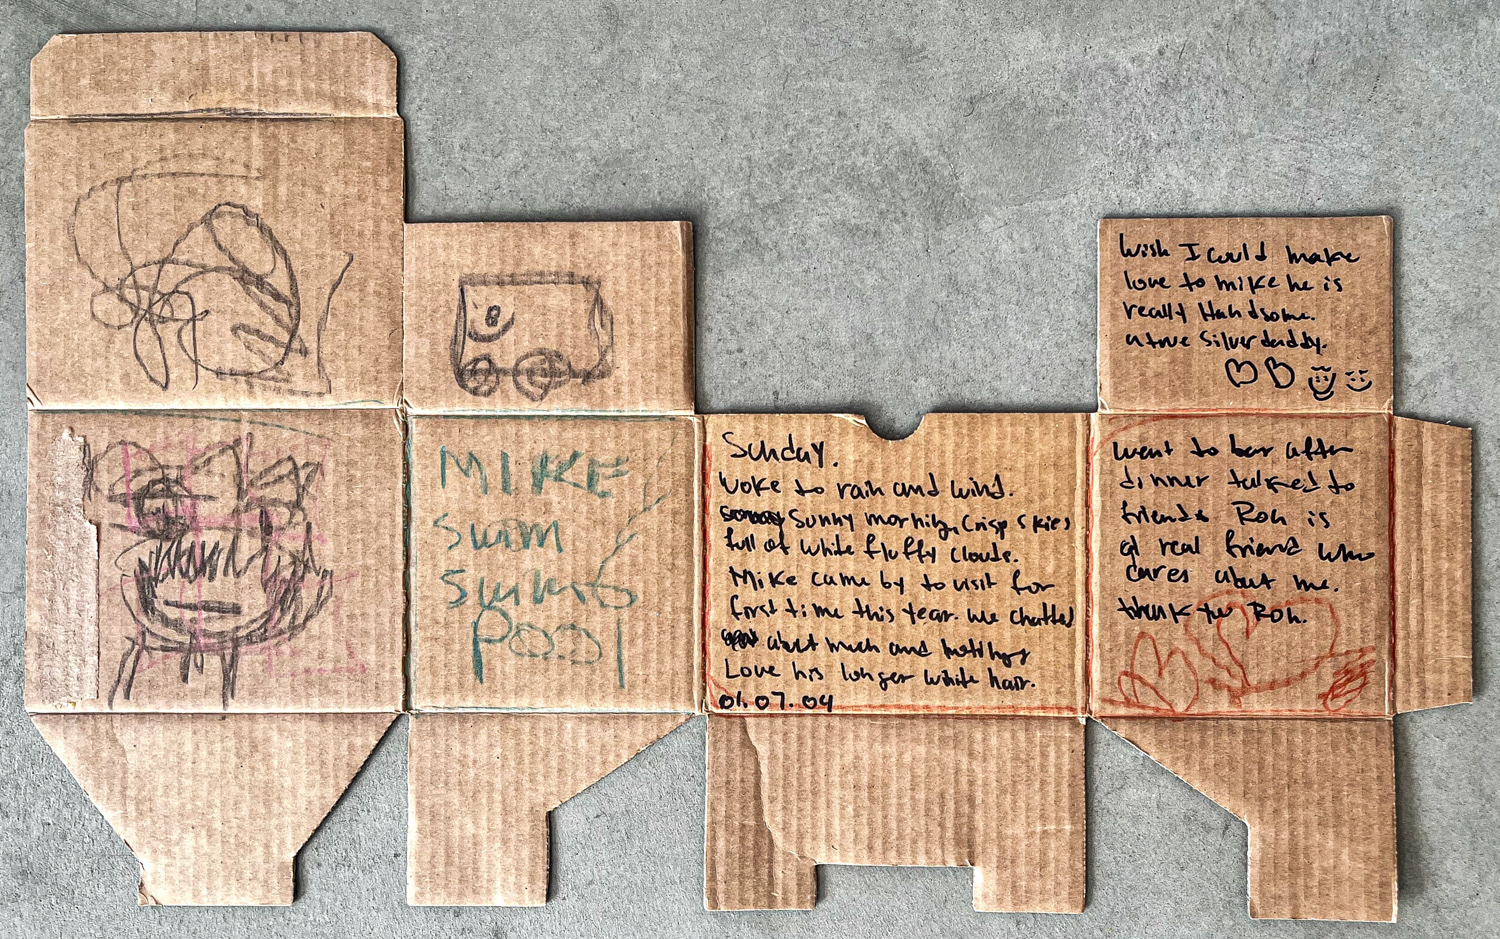 MIKE
swam
swims
Pool
Sunday.
Woke to rain and wind.
Sunny morning, Crisp skies
full of white fluffy clouds.
Mike came by to visit for
first time this year. We chatted
about much and nothing
Love his longer white hair.
01.07.04
Wish I could make
love to mike he is
really Handsome.
a true Silverdaddy.
went to bar after
dinner talked to
friends Ron is
a real friend who
cares about me.
thank you Ron.